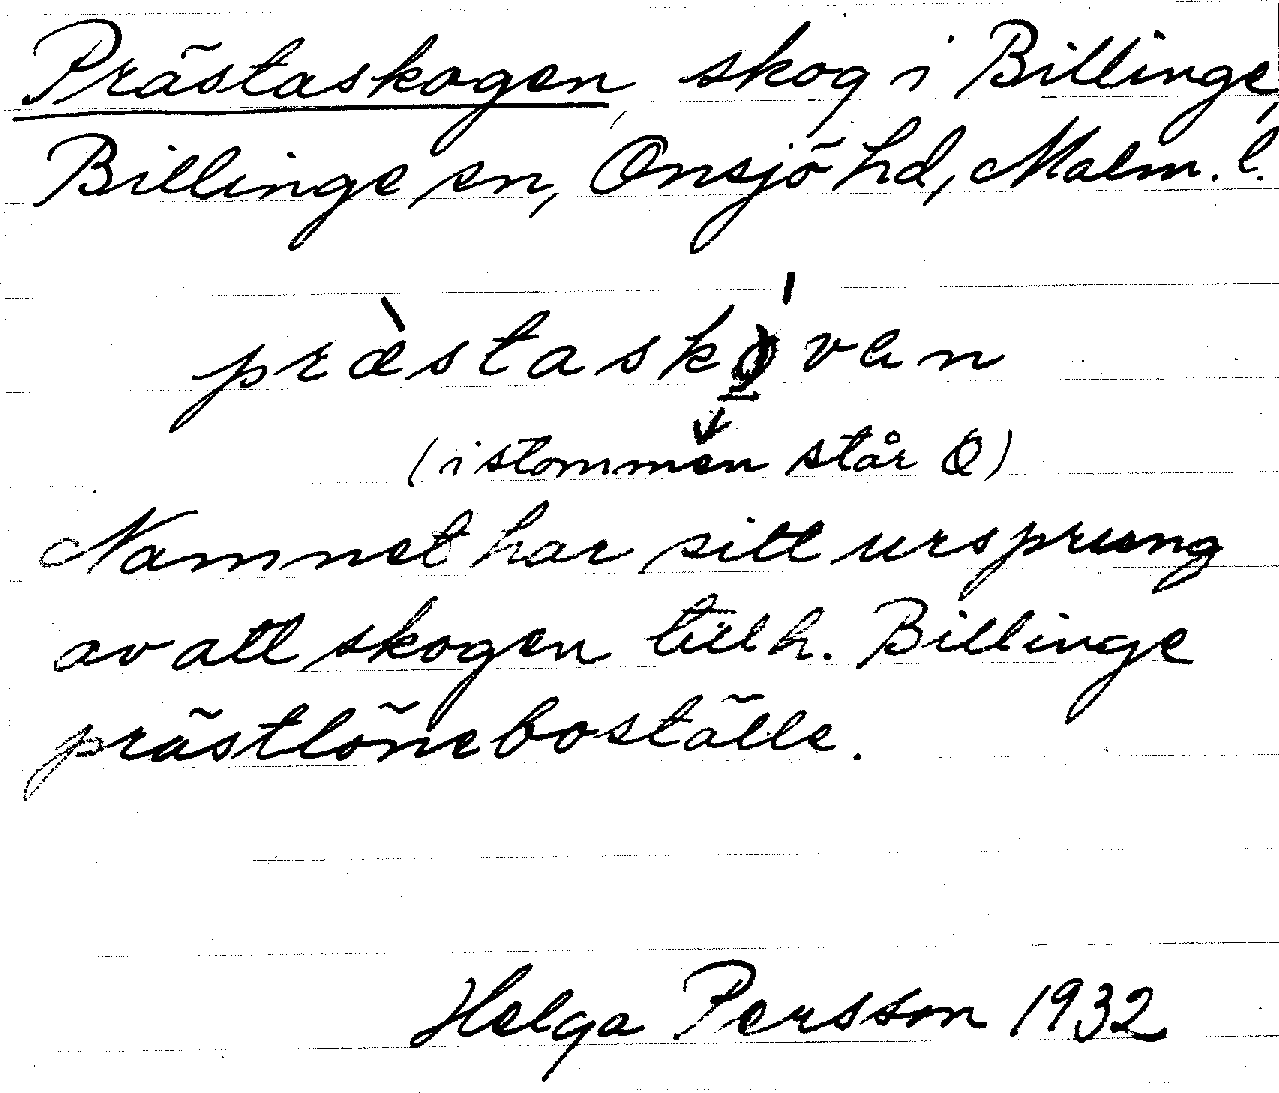 Prästaskogen, skog i Billinge,
Billinge sn, Onsjö hd, Malm. l.
præ̀staskǫ́van
(i stommen står Q)
Namnet har sitt ursprung
av att skogen tillh. Billinge
prästlöneboställe.
Helga Persson 1932